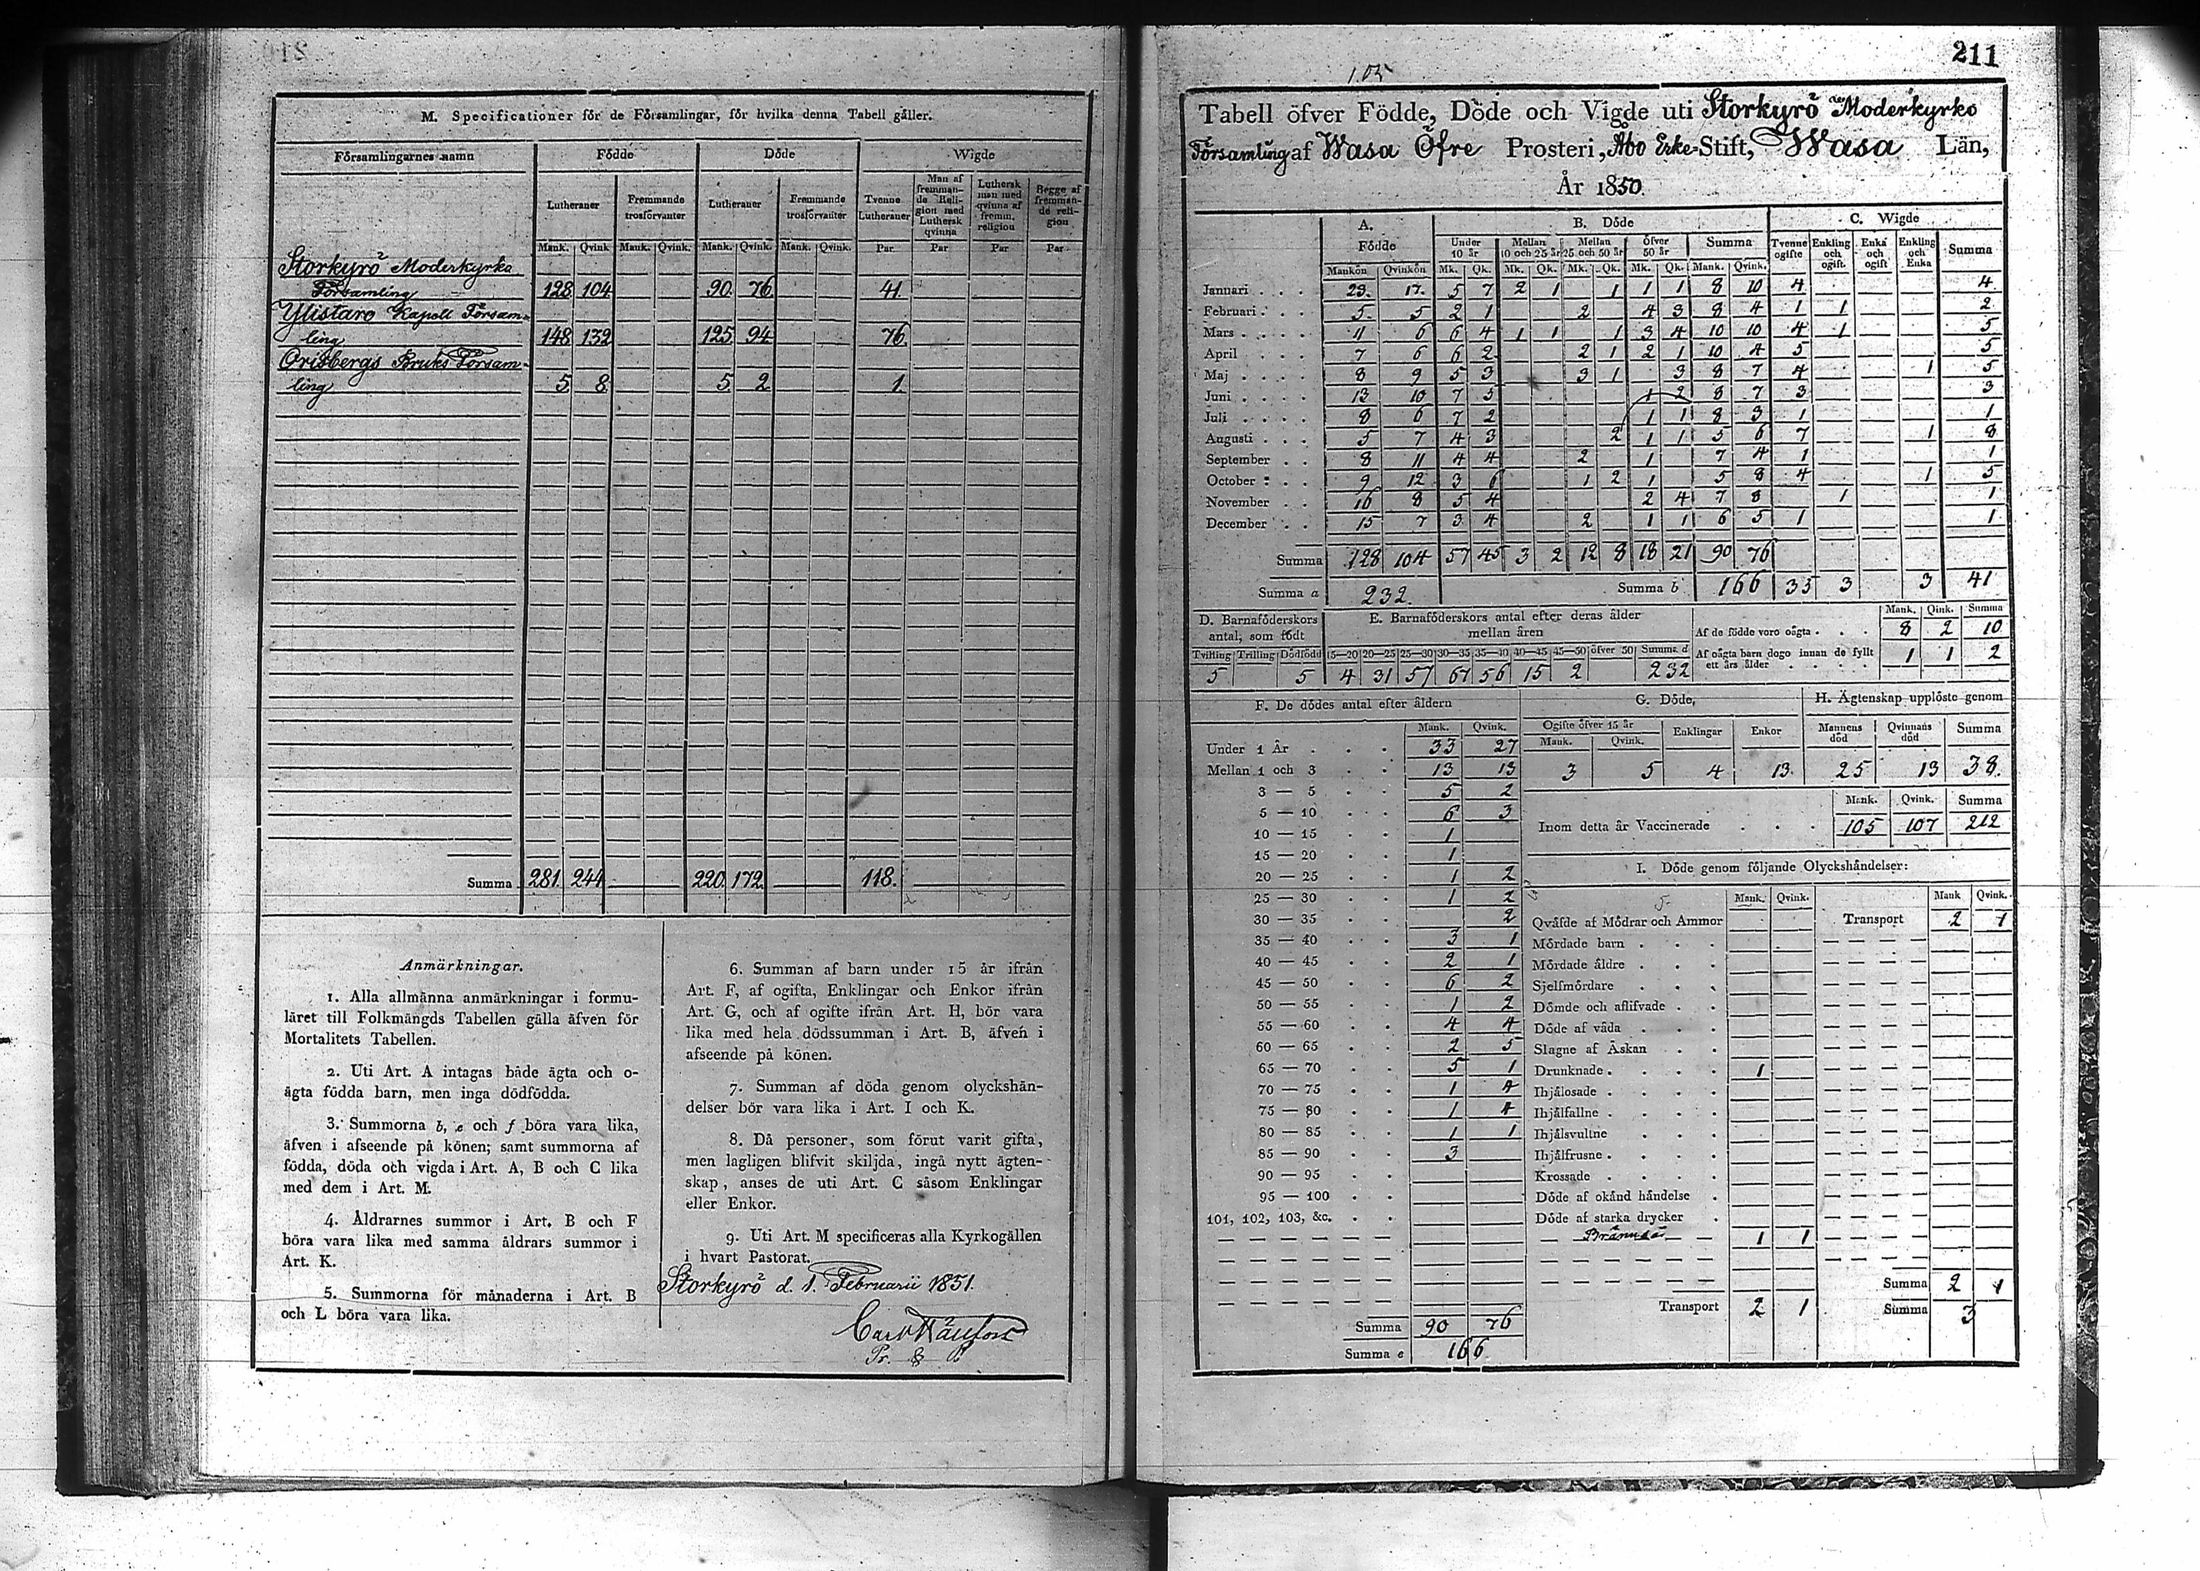 M. Specificationer för de Församlingar, för hvilka denna Tabell gäller.
Församlingarnes namn Födde Döde Wigde
Lutheraner Fremmande trosförvanter Lutheraner Fremmande trosförvanter Tvenne Lutheraner Man af fremmande Religion med Luthersk qvinna Luthersk man med qvinna af fremm. religion Begge af fremmande religion
Mank. Qvink Mank. Qvink. Mank. Qvink. Mank. Qvink. Par Par Par Par
Storkyrö Moderkyrko
Församling 128 104 90 76 41
Ylistaro Kapell Försam-
ling 148 132 125 94 76
Orisbergs Bruks Försam-
ling 5 8 5 2 1
Summa 281 244 220 172 118.
Anmärkningar.
1. Alla allmänna anmärkningar i formu-
läret till Folkmängds Tabellen gälla äfven för
Mortalitets Tabellen.
2. Uti Art. A intagas både ägta och o-
ägta födda barn, men inga dödfödda.
3. Summorna b, e och f böra vara lika,
äfven i afseende på könen; samt summorna af
födda, döda och vigda i Art. A, B och C lika
med dem i Art. M.
4. Åldrarnes summor i Art. B och F
böra vara lika med samma åldrars summor i
Art. K.
5. Summorna för månaderna i Art. B
och L böra vara lika.
6. Summan af barn under 15 år ifrån
Art. F, af ogifta, Enklingar och Enkor ifrån
Art. G, och af ogifte ifrån Art. H, bör vara
lika med hela dödssumman i Art. B, äfven i
afseende på könen.
7. Summan af döda genom olyckshän-
delser bör vara lika i Art. I och K.
8. Då personer, som förut varit gifta,
men lagligen blifvit skiljda, ingå nytt ägten-
skap, anses de uti Art. C såsom Enklingar
eller Enkor.
9. Uti Art. M specificeras alla Kyrkogällen
i hvart Pastorat.
Storkyrö d. 1. Februarii 1851.
211
105
Tabell öfver Födde, Döde och Vigde uti Storkyrö Moderkyrko
Församling af Wasa Öfre Prosteri, Åbo Erke-Stift, Wasa Län,
År 1850.
A. Födde B. Döde C. Wigde
Under 10 år Mellan 10 och 25 år Mellan 25 och 50 år öfver 50 år Summa Tvenne ogifte Enkling och ogift. Enka och ogift Enkling och Enka Summa
Mankön Qvinkön Mk. Qk. Mk. Qk. Mk. Qk. Mk. Qk. Mank. Qvink.
Januari 23. 17. 5 7 2 1 1 1 1 8 10 4 4
Februari 5. 5 2 1 2 4 3 8 4 1 1 2
Mars 11 6 6 4 1 1 1 3 4 10 10 4 1 5
April 7 6 6 2 2 1 2 1 10 4 5 5
Maj 8 9 5 3 3 1 3 8 7 4 1 5
Juni 13 10 7 5 1 2 8 7 3 3
Juli 8 6 7 2 1 1 8 3 1 1
Augusti 5 7 4 3 2 1 1 5 6 7 1 8
September 8 11 4 4 2 1 7 4 1 1
October 9 12 3 6 1 2 1 5 8 4 1 5
November 16 8 5 4 2 4 7 8 1 1
December 15 7 3 4 2 1 1 6 5 1 1
Summa 128 104 57 45 3 2 12 8 18 21 90 76
Summa a 232. Summa b 166 35 3 3 41
D. Barnaföderskors antal, som födt
Tvilling Trilling Dödfödd
5 5
E. Barnaföderskors antal efter deras ålder mellan åren
15—20 20—25 25—30 30—35 35—40 40—45 45—50 öfver 50 Summa d
4 31 57 67 56 15 2 232
Mank. Qink. Summa
Af de födde voro oägta 8 2 10
Af oägta barn dogo innan de fyllt ett års ålder 1 1 2
F. De dödes antal efter åldern
Mank. Qvink.
Under 1 År 33 27
Mellan 1 och 3 13 13
3 — 5 5 2
5 — 10 6 3
10 — 15 1
15 — 20 1
20 — 25 1 2
25 — 30 1 2
30 — 35 2
35 — 40 3 1
40 — 45 2 1
45 — 50 6 2
50 — 55 1 2
55 — 60 4 4
60 — 65 2 5
65 — 70 5 1
70 — 75 1 4
75 — 80 1 4
80 — 85 1 1
85 — 90 3
90 — 95
95 — 100
101, 102, 103, &c.
Summa 90 76
Summa e 166
G. Döde,
Ogifte öfver 15 år Enklingar Enkor
Mank. Qvink.
3 5 4 13.
H. Ägtenskap upplöste genom
Mannens död Qvinnans död Summa
25 13 38.
Mank. Qvink. Summa
Inom detta år Vaccinerade 105 107 212
I. Döde genom följande Olyckshändelser:
Mank. Qvink. Mank Qvink.
Qväfde af Mödrar och Ammor Transport 2 1
Mördade barn
Mördade äldre
Sjelfmördare
Dömde och aflifvade
Döde af våda
Slagne af Åskan
Drunknade 1
Ihjälosade
Ihjälfallne
Ihjälsvultne
Ihjälfrusne
Krossade
Döde af okänd händelse
Döde af starka drycker
Brännda 1 1
Summa 2 1
Transport 2 1 Summa 3